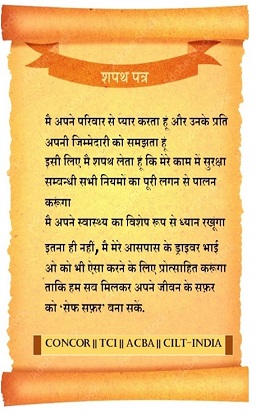 शपथ पत्र
मै अपने परिवार से प्यार करता हूं और उनके प्रति
अपनी जिम्मेदारी को समझता हूं
इसी लिए मै शपथ लेता हूं कि मेरे काम में सुरक्षा
सम्वन्धी सभी नियमों का पूरी लगन से पालन
करूंगा
मै अपने स्वास्थ्य का विशेष रूप से ध्यान रखूंगा
इतना ही नहीं, मै मेरे आसपास के ड्राइवर भाई
ओ को भी ऐसा करने के लिए प्रोत्साहित करूंगा
ताकि हम सव मिलकर अपने जीवन के सफ़र
को 'सेफ सफ़र' वना सकें.
CONCOR || TCI || ACBA || CILT-INDIA